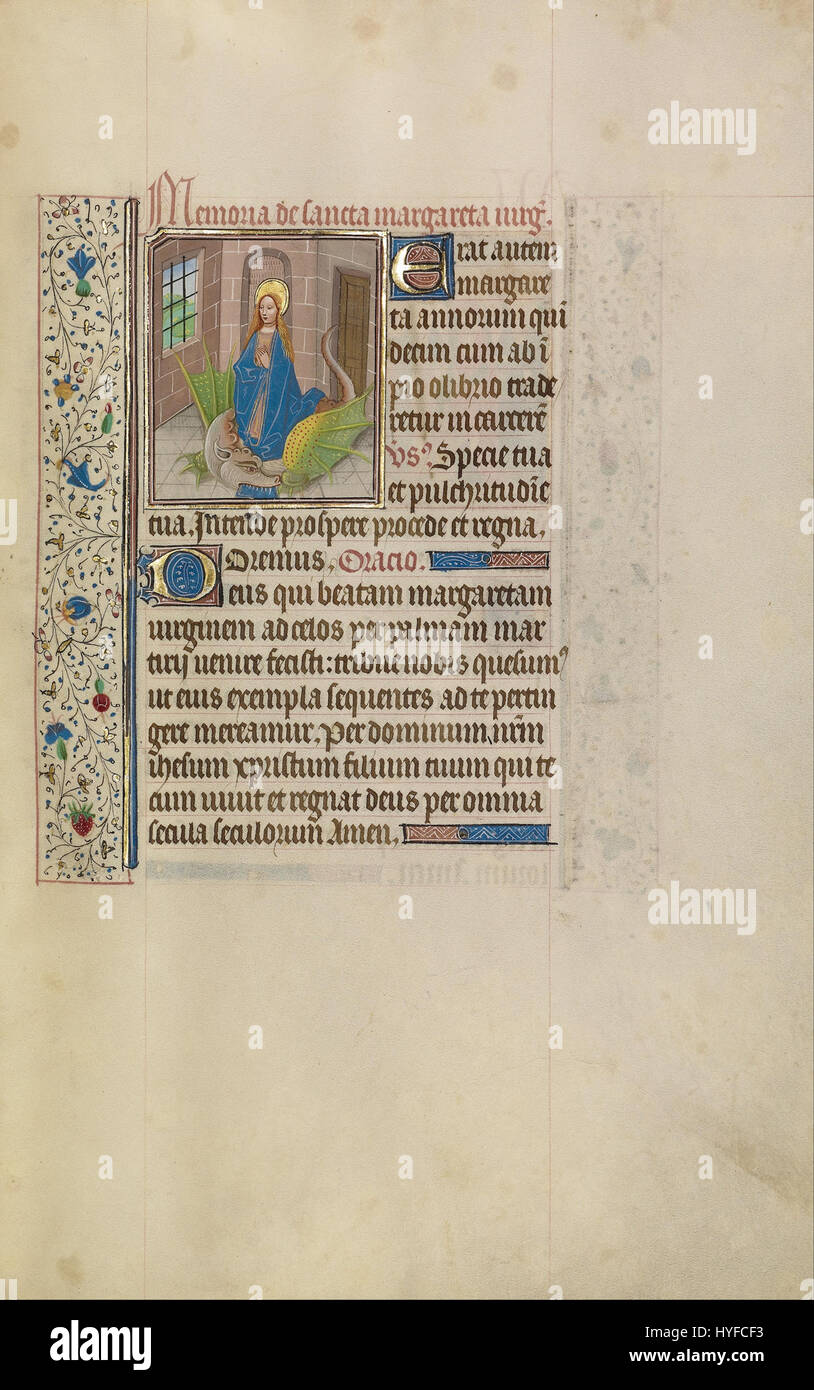 Memoria de sancta margareta uirg̃.
Erat autem
margare
ta annorum quĩ
decim cum ab ĩ
pio olibrio trade
retur in carcerẽ
vs᷒. Specie tua
et pulchritudĩe
tua. Intende prospere procede et regna.
Oremus. Oracio.
Deus qui beatam margaretam
uirginem ad celos per palmam mar
tirij uenire fecisti: tribue nobis quesumꝰ
ut eius exempla sequentes ad te pertin
gere mereamur. Per dominum nr̃m
ihesum xpristum filium tuum qui te
cum uiuit et regnat deus per omnia
secula seculorum Amen.
alamy
a
alamy
Image ID: HYFCF3
www.alamy.com